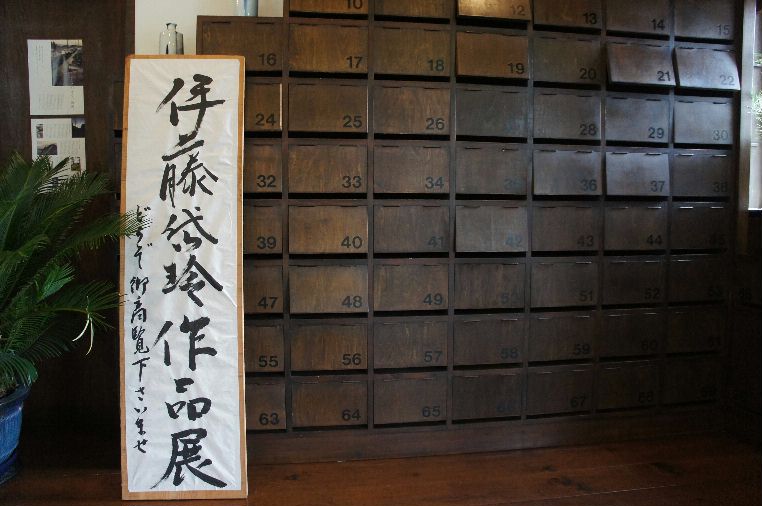 伊藤岱玲作品展
どうぞ御高覧下さいませ
12
13
14
15
16
17
18
19
20
21
22
24
25
26
28
29
30
32
33
34
35
36
37
38
39
40
41
42
43
44
45
47
48
49
50
51
52
53
55
56
57
58
59
60
61
63
64
65
66
67
68
69